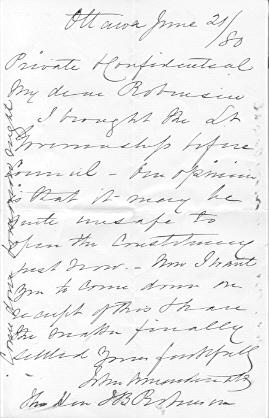 Ottawa June 21/80
Private & Confidential
My dear Robinson
I brought the Lt
Governorship before
Council - Our opinion
is that it may be
quite unsafe to
open the Constituency
just now. - Now I want
you to come down on
receipt of this & have
the matter finally
settled Yours faithfully
John A Macdonald
The Hon J B Robinson
Come down